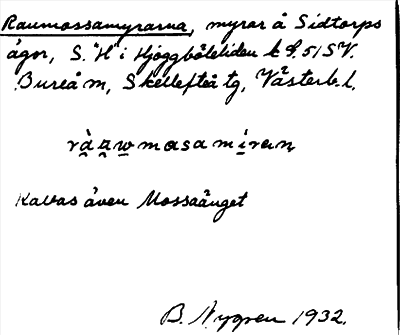 Raumossamyrarna, myrar å Sidtorps
ägor, S. "H" i Hjoggböleliden k bl. 51 SV.
Bureå m, Skellefteå tg, Västerb. l.
ràawmosamiran
Kallas även Mossaänget
B. Nygren 1932.